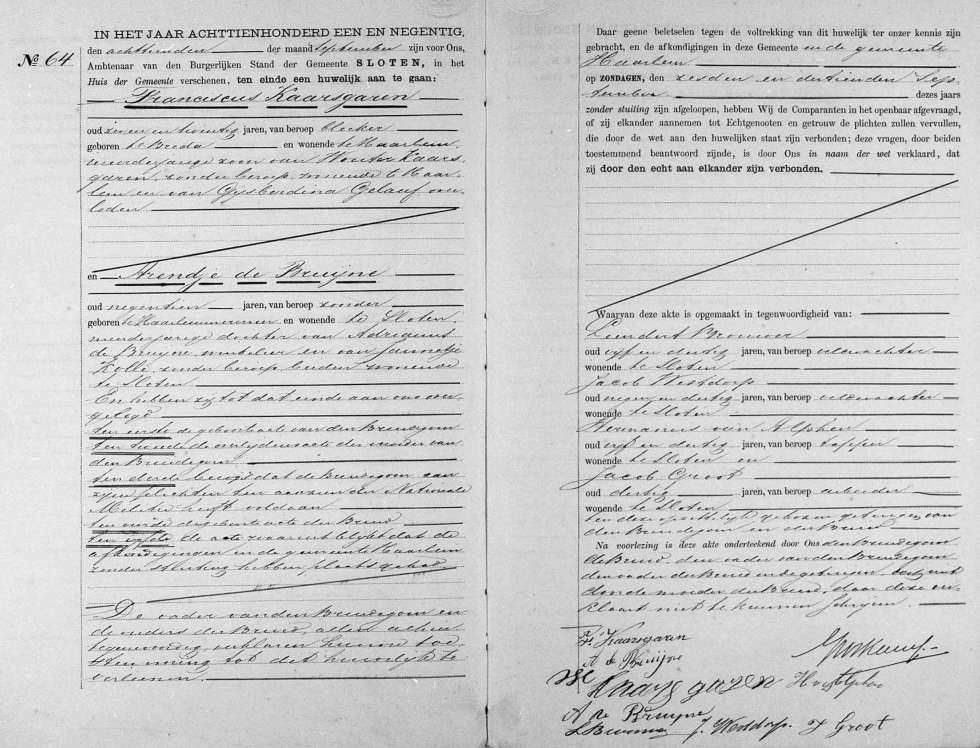 IN HET JAAR ACHTTIENHONDERD EEN EN NEGENTIG,
№ 64
den achttienden der maand September zijn voor Ons,
Ambtenaar van den Burgerlijken Stand der Gemeente SLOTEN, in het
Huis der Gemeente verschenen, ten einde een huwelijk aan te gaan:
Franciscus Kaarsgaren
oud zeven en twintig jaren, van beroep bleeker
geboren te Breda en wonende te Haarlem
meerderjarige zoon van Wouter Kaars-
garen, zonder beroep, wonende te Haar-
lem en van Gijsberdina Gelauf over-
leden
en Arendje de Bruijne
oud negentien jaren, van beroep zonder
geboren te Haarlemmermeer en wonende te Sloten,
minderjarige dochter van Adrianus
de Bruijne, en van Jannetje
Kolle, zonder beroep, beiden wonende
te Sloten
En hebben zij tot dat einde aan ons over-
gelegd
ten eerste de geboorteacte van den Bruidegom
ten tweede de overlijdensacte der moeder van
den Bruidegom
ten derde bewijs dat de Bruidegom aan
zijne plichten ten aanzien der Nationale
Militie heeft voldaan
ten vierde de geboorteacte der Bruid
ten vijfde de acte waaruit blijkt dat de
afkondigingen in de gemeente Haarlem
zonder stuiting hebben plaats gehad
De vader van den Bruidegom en
de ouders der Bruid, allen alhier
tegenwoordig, verklaren hunne toe-
stemming tot dit huwelijk te
verleenen
Daar geene beletselen tegen de voltrekking van dit huwelijk ter onzer kennis zijn
gebracht, en de afkondigingen in deze Gemeente en de gemeente
Haarlem
op ZONDAGEN, den zesden en dertienden Sep-
tember dezes jaars
zonder stuiting zijn afgeloopen, hebben Wij de Comparanten in het openbaar afgevraagd,
of zij elkander aannemen tot Echtgenooten en getrouw de plichten zullen vervullen,
die door de wet aan den huwelijken staat zijn verbonden; deze vragen, door beiden
toestemmend beantwoord zijnde, is door Ons in naam der wet verklaard, dat
zij door den echt aan elkander zijn verbonden.
Waarvan deze akte is opgemaakt in tegenwoordigheid van:
Leendert Brouwer
oud vijf en dertig jaren, van beroep veldwachter
wonende te Sloten
Jacob Westdorp
oud negen en dertig jaren, van beroep veldwachter
wonende te Sloten
Hermanus van Alphen
oud vijf en dertig jaren, van beroep tapper
wonende te Sloten en
Jacob Groot
oud dertig jaren, van beroep arbeider
wonende te Sloten
ten deze opzettelijk gekozen getuigen van
den Bruidegom en de Bruid
Na voorlezing is deze akte onderteekend door Ons den Bruidegom
de Bruid, den vader van den Bruidegom
den vader der Bruid en de getuigen,
de moeder der Bruid, door deze ver-
klaart niet te kunnen schrijven
F. Kaarsgaren
A de Bruijne
Kaarsgaren
A de Bruyne
LBrouwer J. Westdorp J Groot